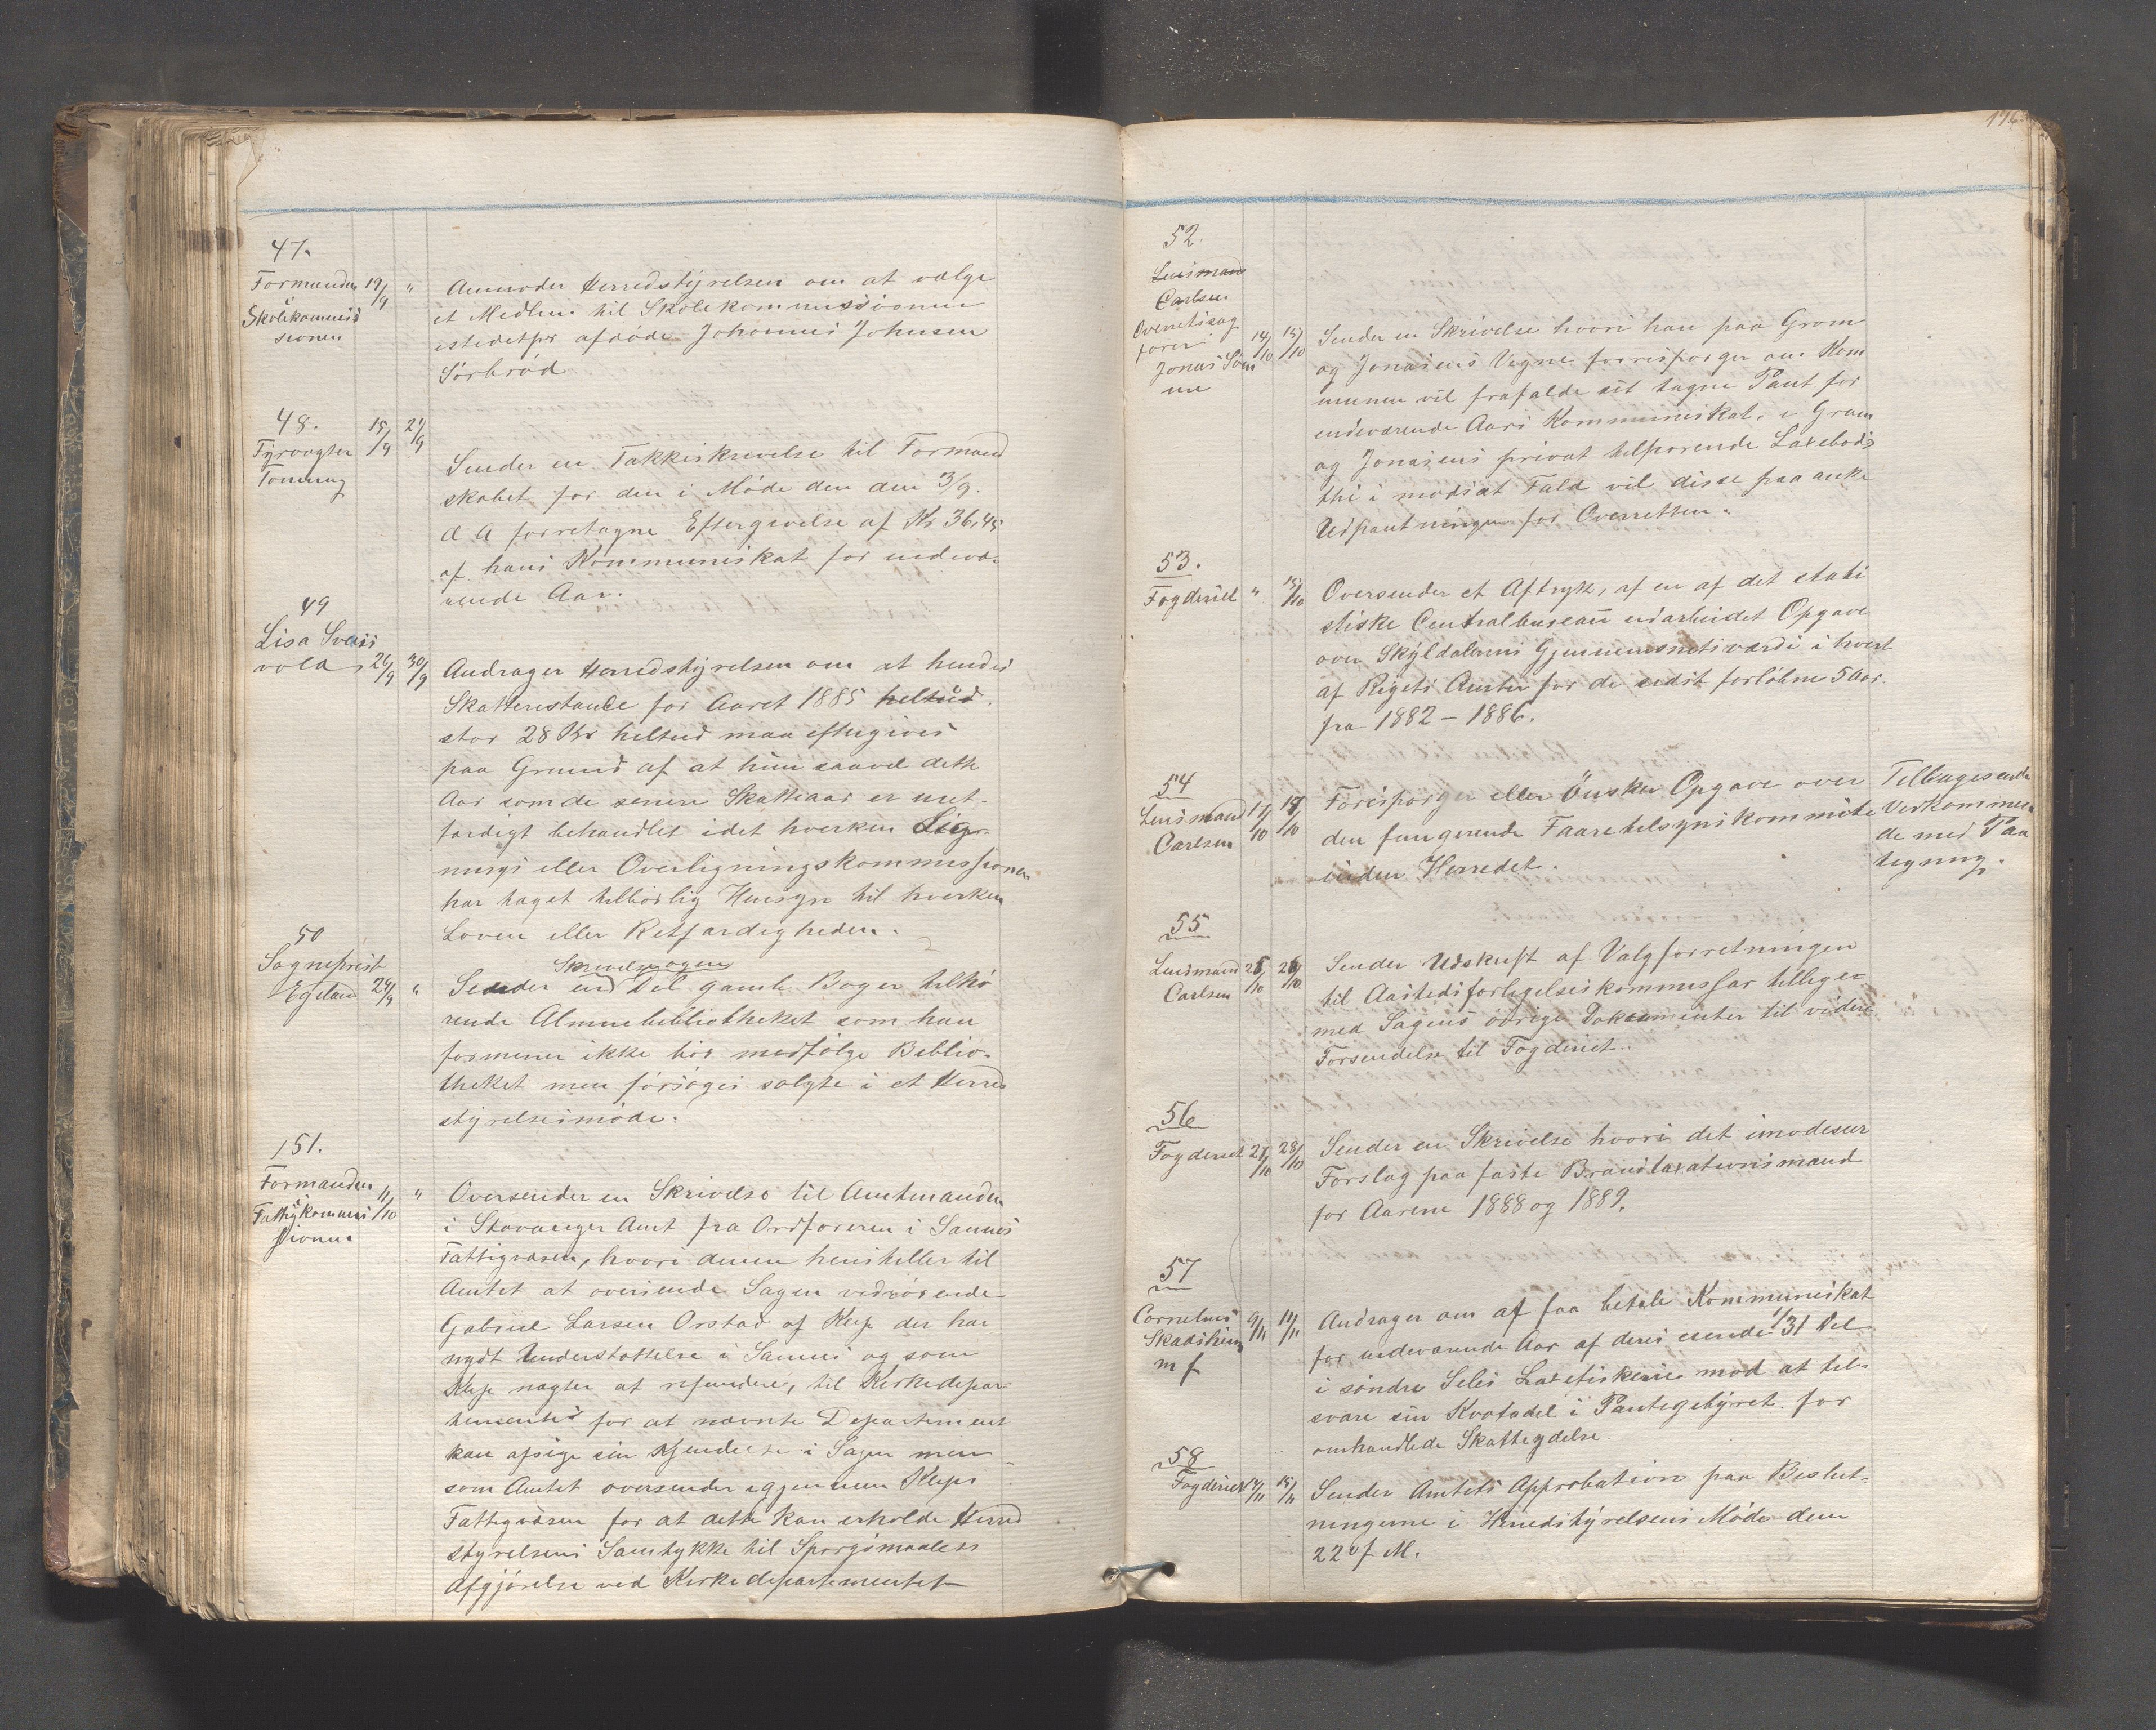 47.
Formanden i 19/9 "
Skolekommis
sionen
Anmoder Herredstyrelsen om at vælge
et Medlem til Skolekommissionen
istedetfor afdøde Johannes Johnsen
Sørbrød
48.
Fyrvogter 15/9 21/9
Tonning
Sender en Takkeskrivelse til Formand
skabet for den i Møde den den 3/9.
d A foretagne Eftergivelse af Kr 36,45
af hans Kommuneskat for indevæ-
rende Aar.
49
Lisa Sveis
vold 26/9 30/9
Andrager Herredstyrelsen om at hendes
Skatterestance for Aaret 1885 heltud
stor 28 Kr heltud maa eftergives
paa Grund af at hun saavel dette
Aar som de senere Skatteaar er uret-
færdigt behandlet idet hverken Lig-
nings eller Overligningskommissionen
har taget tilbørlig Hensyn til hverken
Loven eller Retfærdigheden.
50
Sogneprest
Egeland 24/9 "
Skrivelse ogen
Sender en Del gamle Bøger tilhø
rende Almuebibliotheket som han
formener ikke bør medfølge Biblio-
theket men forsøges solgte i et Herred
styrelsesmøde.
151.
Formanden i 11/10 "
Fattigkommis
sionen
Oversender en Skrivelse til Amtmanden
i Stavanger Amt fra Ordføreren i Sannes
Fattigvæsen, hvori denne henstiller til
Amtet at oversende Sagen vedrørende
Gabriel Larsen Orstad af Klep der har
nydt Understøttelse i Sannes og som
Klep nægter at refundere, til Kirkedepar
tementet for at nævnte Departement
kan afsige sin Kjendelse i Sagen men
som Amtet oversender igjennem Kleps
Fattigvæsen for at dette kan erholde Herred
styrelsens Samtykke til Spørgsmaalets
Afgjørelse ved Kirkedepartementet
176
52.
Lensmand
Carlsen.
Overretssag
fører
Jonas Søm 14/10 15/10
me
Sender en Skrivelse hvori han paa Gram
og Jonasens Vegne forespørger om Kom
munen vil frafalde sit tagne Pant for
indeværende Aars Kommuneskat, i Gram
og Jonasens privat tilhørende Laxebod
thi i modsat Fald vil disse paaanke
Udpantningen for Overretten.
53.
Fogderiet " 15/10
Oversender et Aftryk, af en af det stati
stiske Centralbureau udarbeidet Opgave
over Skylddalerens Gjennemsnitsværdi i hvert
af Rigets Amter for de sidst forløbne 5 Aar.
fra 1882 – 1886.
54
Lensmand 17/10 18/10
Carlsen
Forespørger eller Ønsker Opgave over
den fungerende Faaretilsynskommite
inden Herredet.
Tilbagesendt
Vedkommen-
de med Paa
tegning.
55
Lensmand 25/10 26/10
Carlsen
Sender Udskrift af Valgforretningen
til Aastedsforligelseskommissær tillige-
med Sagens øvrige Dokumenter til videre
Forsendelse til Fogderiet.
56
Fogderiet 27/10 28/10
Sender en Skrivelse hvori det imødeser
Forslag paa faste Brandtaxationsmænd
for Aarene 1888 og 1889.
57
Cornelius 9/11 11/11
Skadsheim
m f
Andrager om at faa betale Kommuneskat
for indeværende Aar af deres eiende 1/31 Del
i søndre Seles Laxefiskerie mod at til-
svare sin Kvotadel i Pantegebyret for
omhandlede Skatteydelse.
58
Fogderiet 14/11 15/11
Sender Amtets Approbation paa Beslut-
ningerne i Herredstyrelsens Møde den
22 f M.